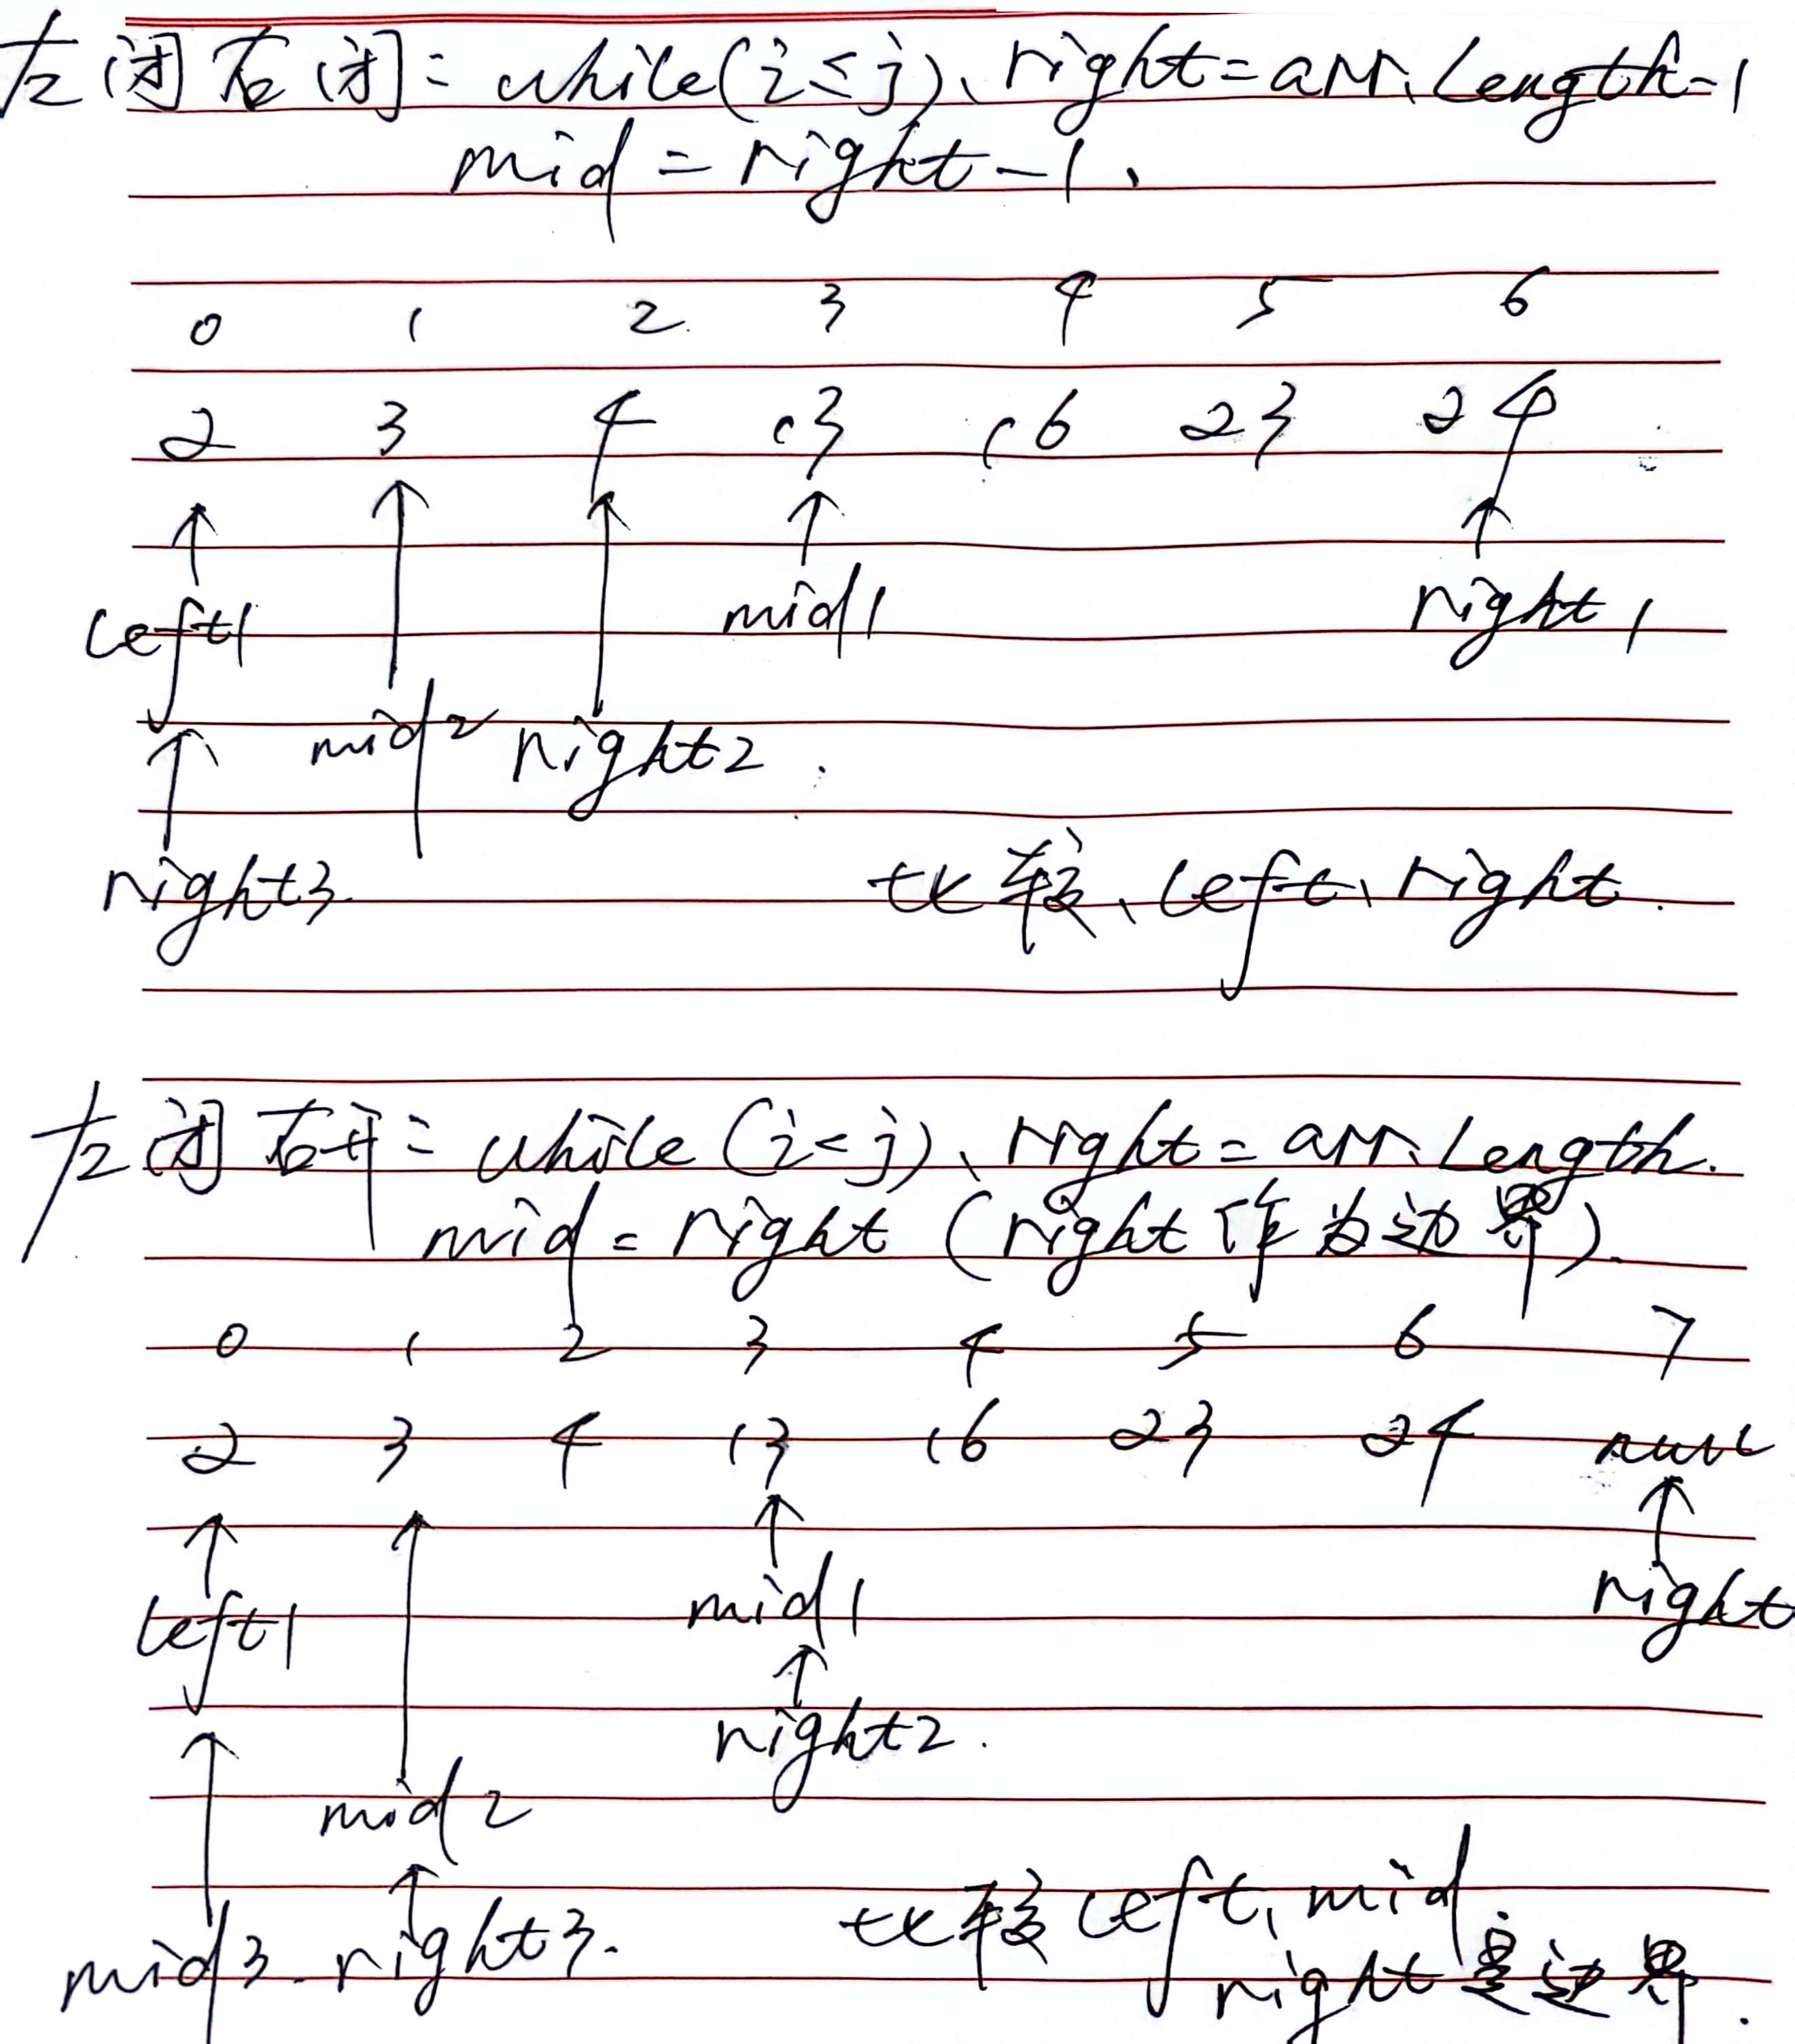 左闭右闭: while(i≤j)、right=arr.length-1
mid=right-1、
0 1 2 3 4 5 6
2 3 4 13 16 23 24
left1 mid1 right1
mid2 right2.
right3
比较、left、right.
左闭右开: while(i<j)、right=arr.length.
mid=right (right作为边界)
0 1 2 3 4 5 6 7
2 3 4 13 16 23 24 null
left1 mid1 right
right2.
mid2
mid3 right3. 比较left、mid
right是边界.